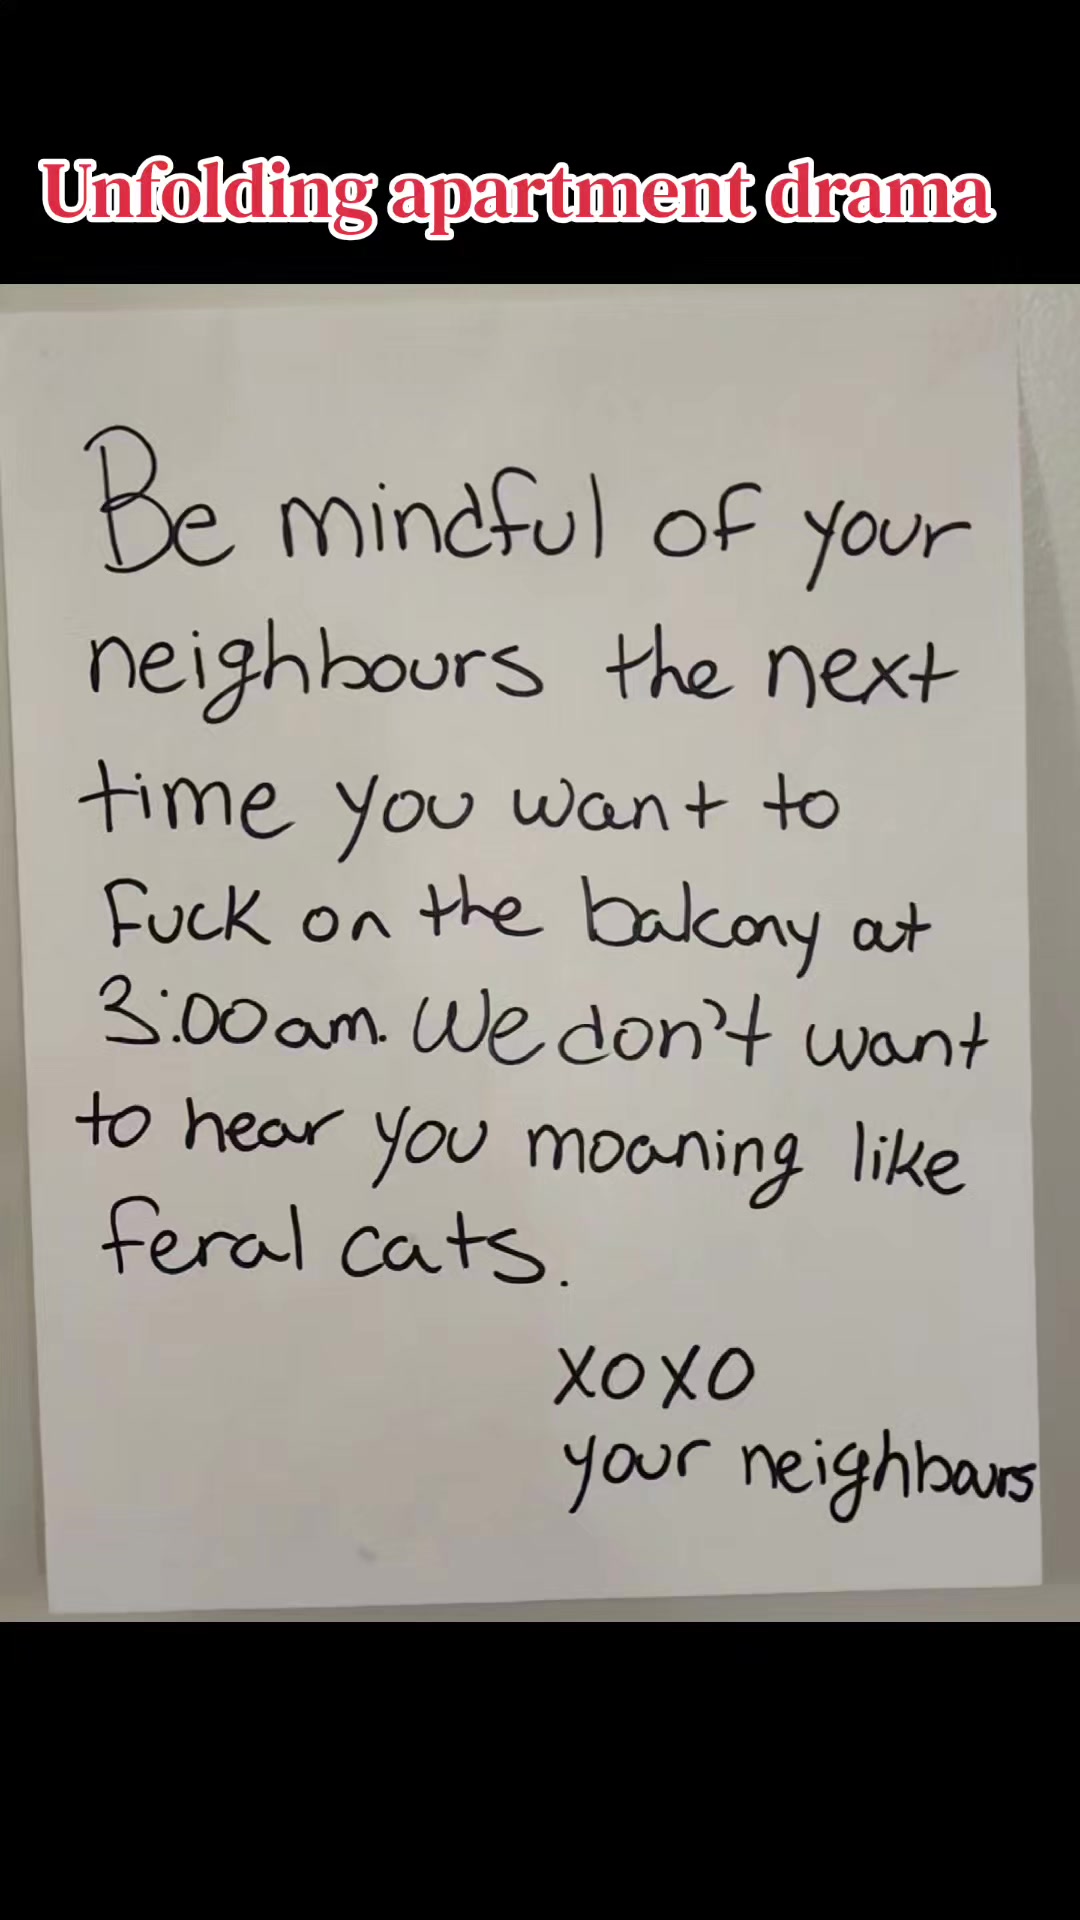 Unfolding apartment drama
Be mindful of your
neighbours the next
time you want to
fuck on the balcony at
3:00am. We don't want
to hear you moaning like
feral cats.
xoxo
your neighbours